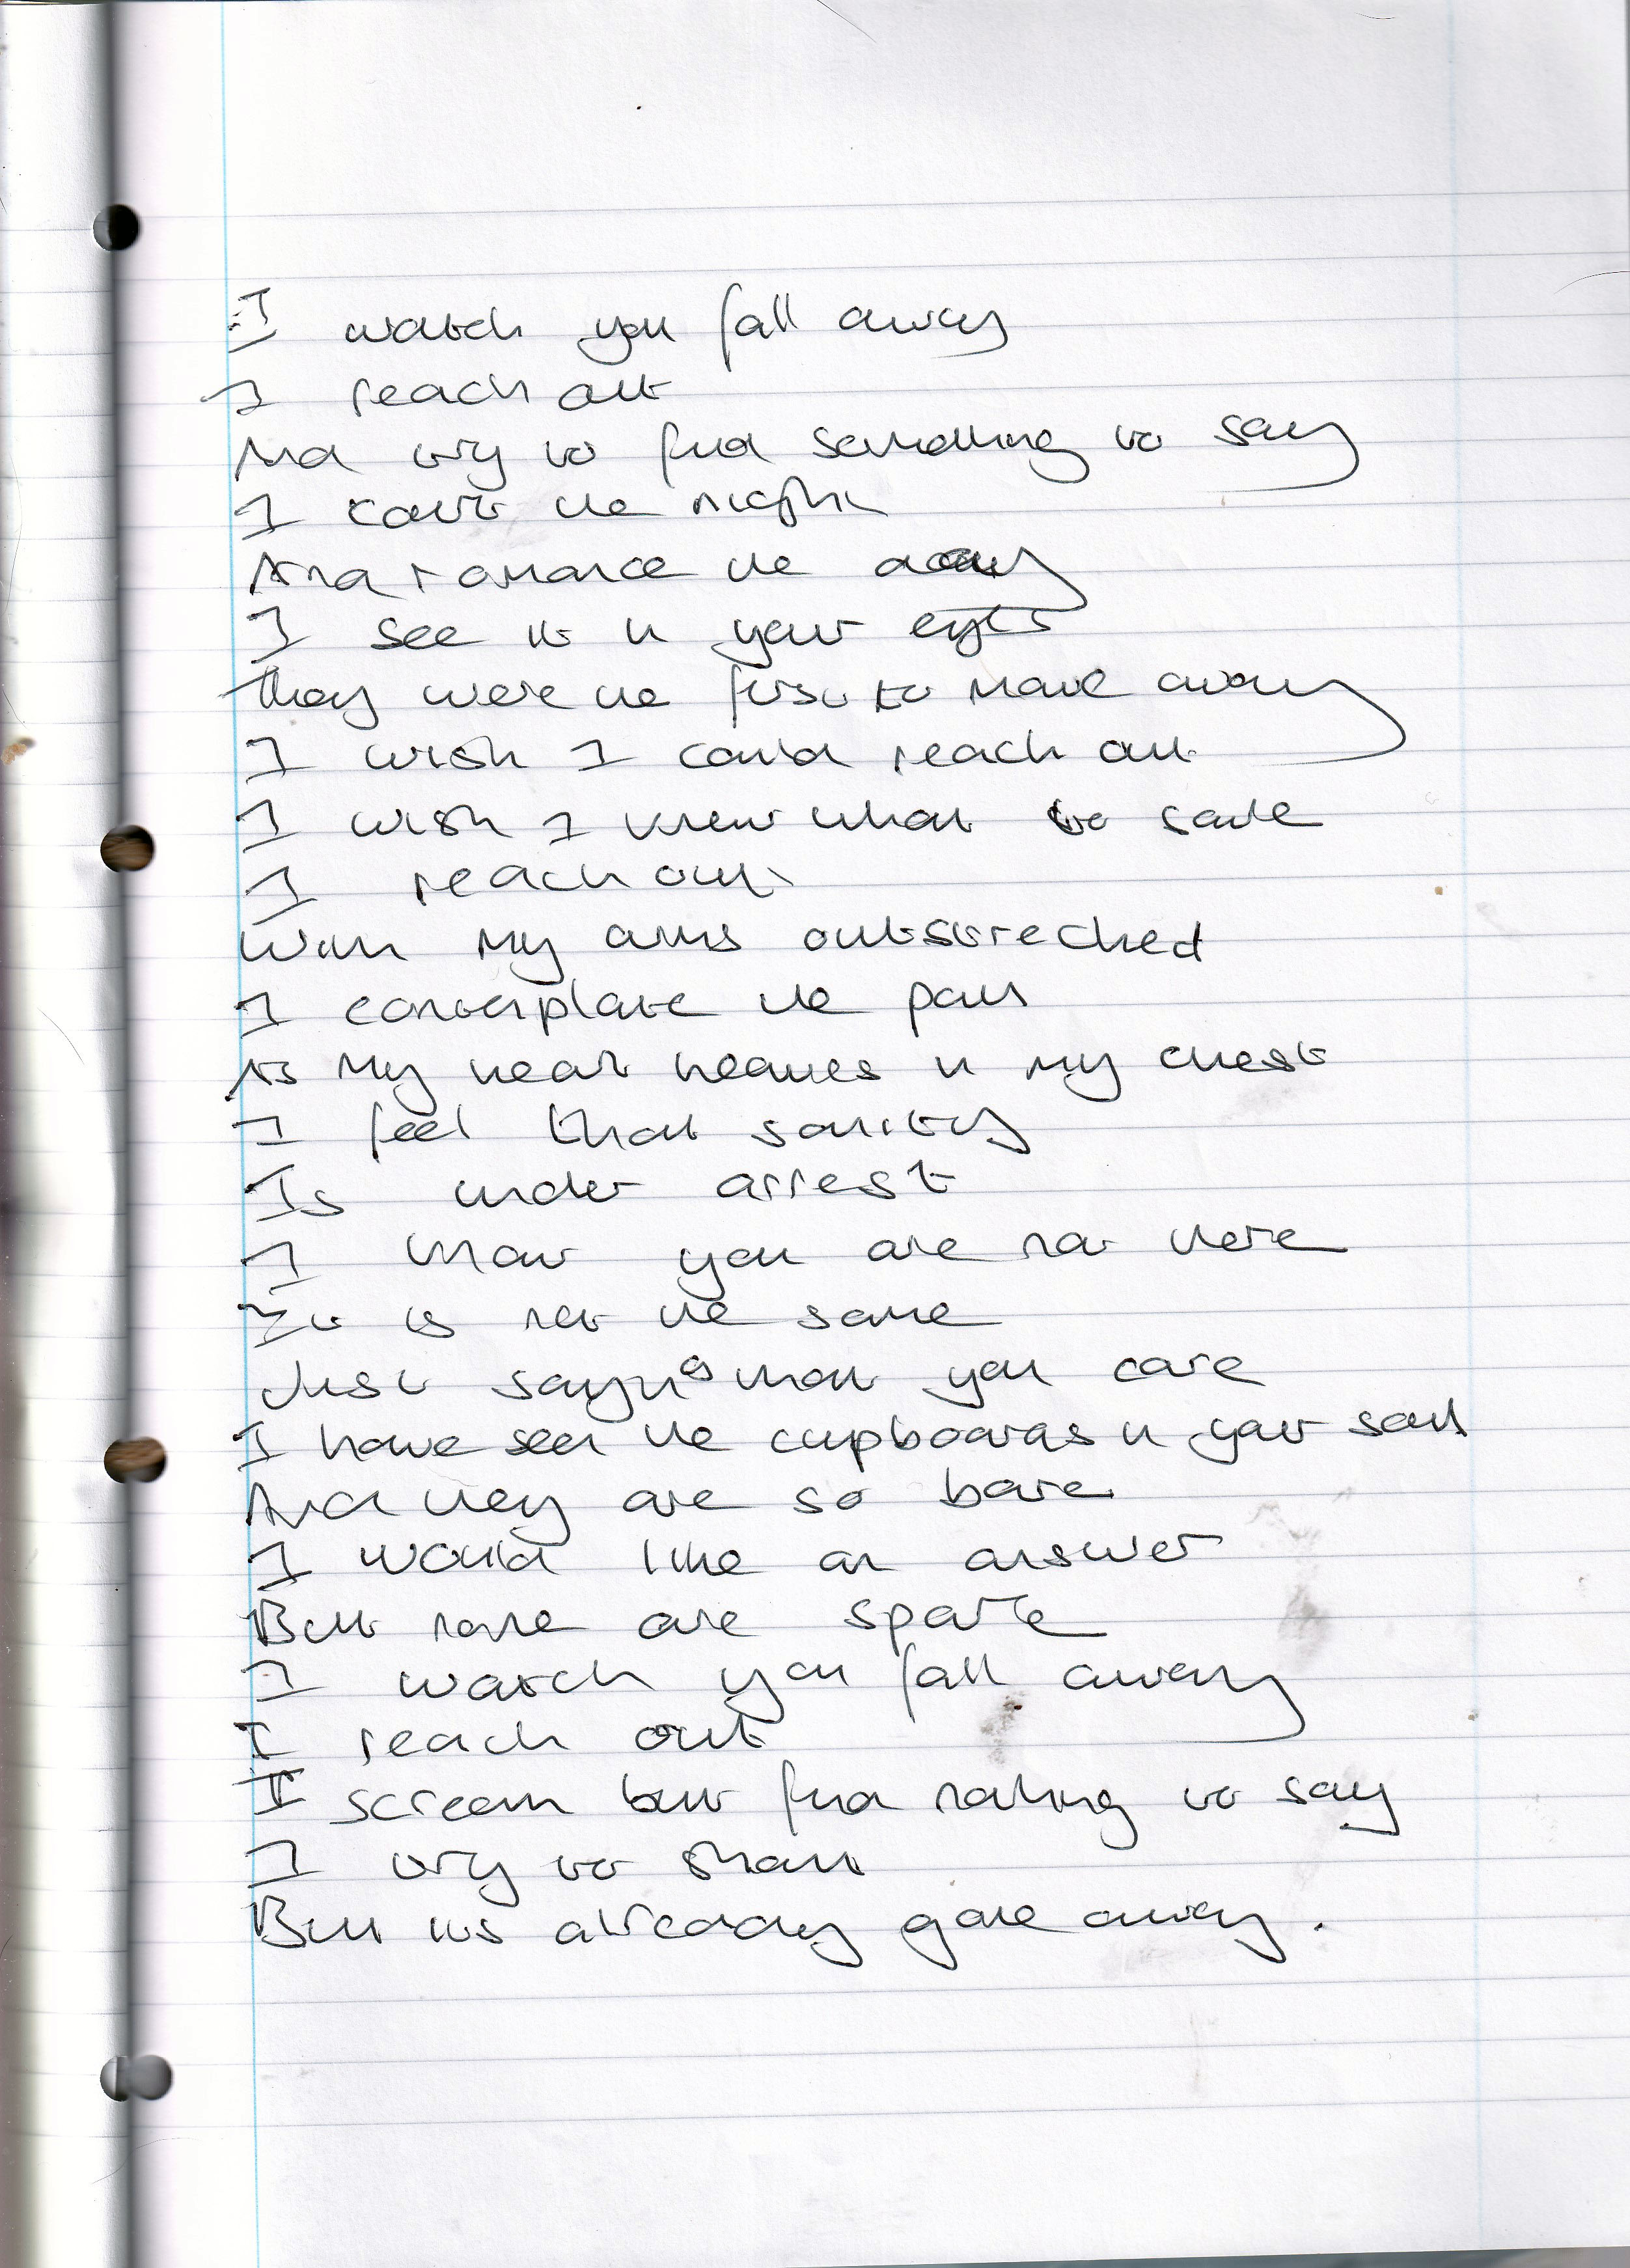 I watch you fall away
I reach out
And try to find something to say
I court the night
And romance the day
I see it in your eyes
They were the first to move away
I wish I could reach out
I wish I knew what to save
I reach out
With my arms outstreched
I contemplate the pain
As my heart heaves in my chest
I feel that sanity
Is under arrest
I know you are not there
It is not the same
Just saying that you care
I have seen the cupboards in your soul
And they are so bare
I would like an answer
But none are spare
I watch you fall away
I reach out
I scream but find nothing to say
I try to shout
But its already gone away.